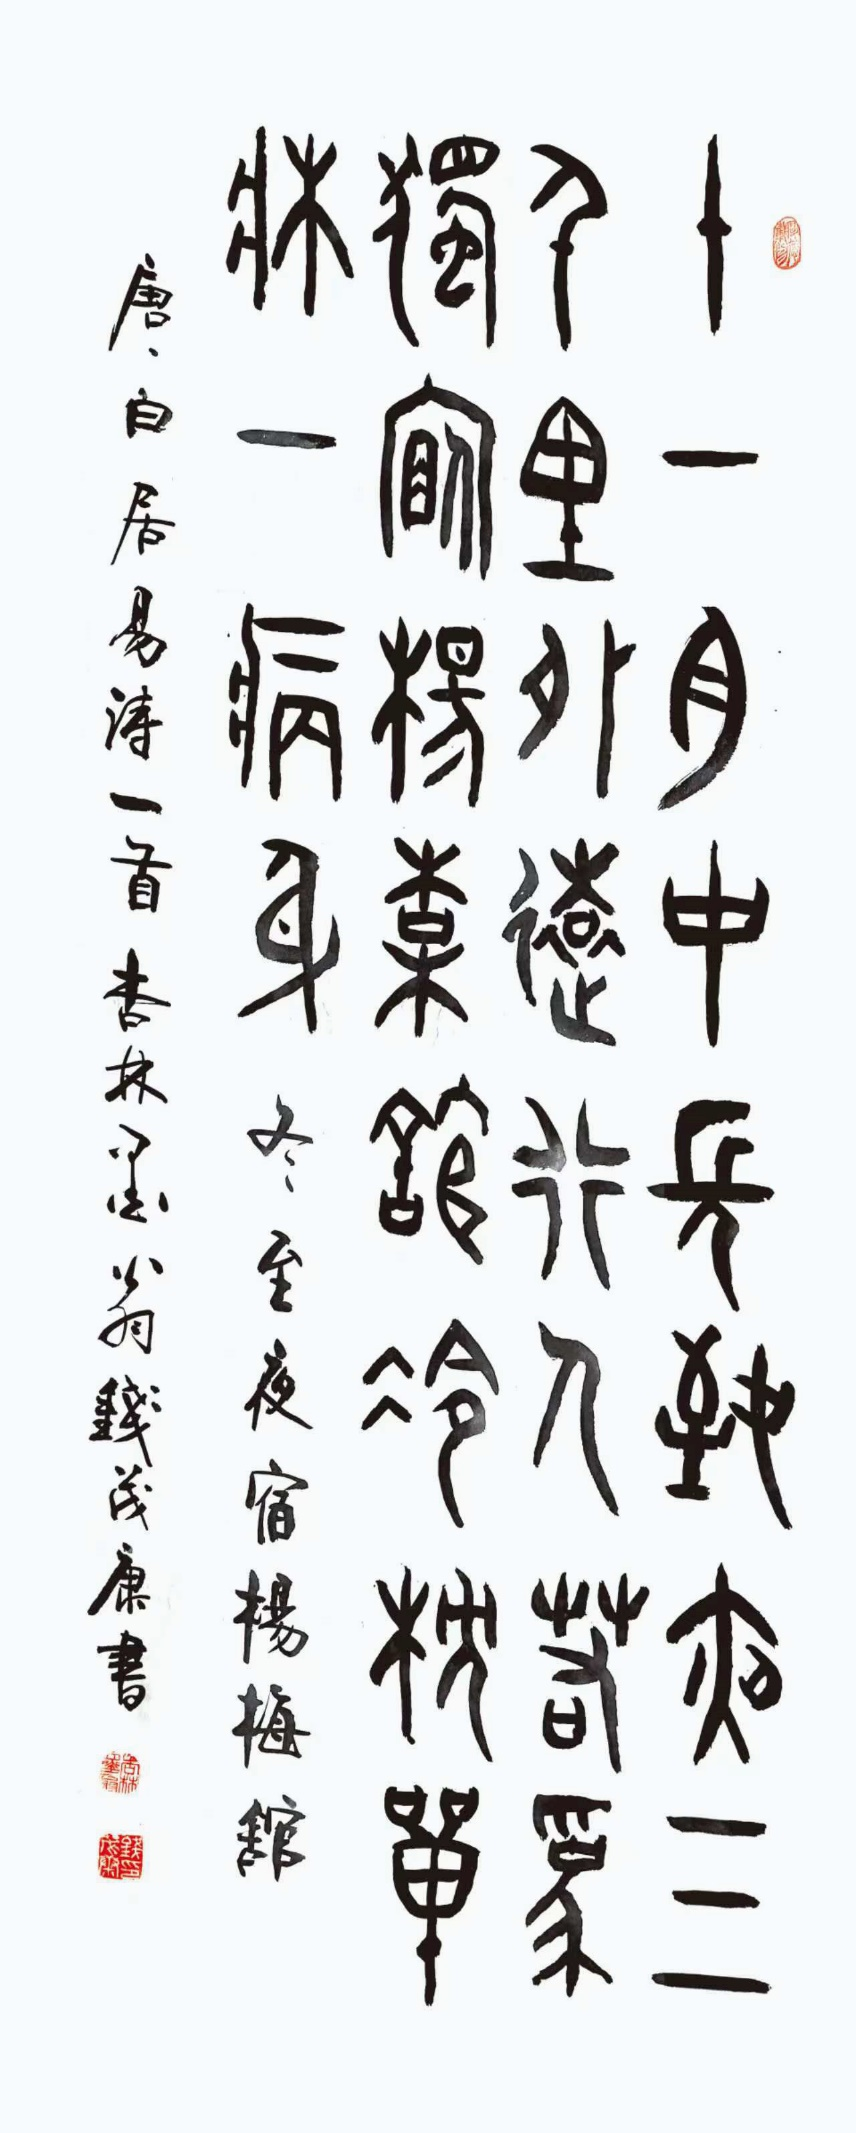 十一月中長至夜三
千里外遠行人若為
獨宿楊梅館冷枕單
牀一病身 冬至夜宿楊梅館
唐白居易詩一首 杏林墨翁錢茂康書
杏林墨翁